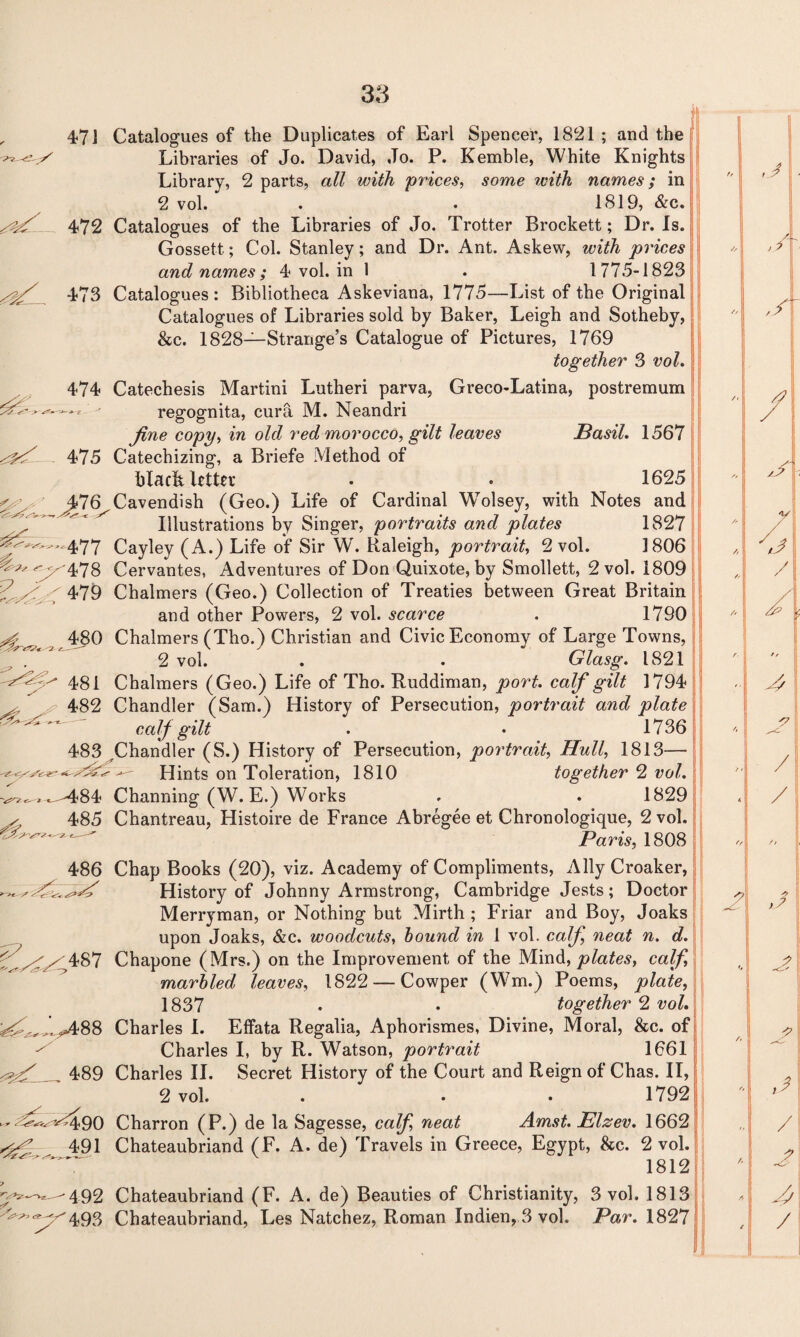 33
471 Catalogues of the Duplicates of Earl Spencer, 1821 ; and the
Libraries of Jo. David, Jo. P. Kemble, White Knights
Library, 2 parts, all with prices, some with names ; in
2 vol. . . 1819, &c.
472 Catalogues of the Libraries of Jo. Trotter Brockett ; Dr. Is.
Gossett ; Col. Stanley ; and Dr. Ant. Askew, with prices
and names ; 4 vol. in 1 . 1775-1823
473 Catalogues : Bibliotheca Askeviana, 1775—List of the Original
Catalogues of Libraries sold by Baker, Leigh and Sotheby,
&c. 1828—Strange's Catalogue of Pictures, 1769
together 3 vol.
474 Catechesis Martini Lutheri parva, Greco-Latina, postremum
regognita, curâ M. Neandri
fine copy, in old red morocco, gilt leaves Basil. 1567
475 Catechizing, a Briefe Method of
black letter . . 1625
476 Cavendish (Geo.) Life of Cardinal Wolsey, with Notes and
Illustrations by Singer, portraits and plates 1827
477 Cayley (A.) Life of Sir W. Raleigh, portrait, 2 vol. 1806
478 Cervantes, Adventures of Don Quixote, by Smollett, 2 vol. 1809
479 Chalmers (Geo.) Collection of Treaties between Great Britain
and other Powers, 2 vol. scarce . 1790
480 Chalmers (Tho.) Christian and Civic Economy of Large Towns,
2 vol. . . Glasg. 1821
481 Chalmers (Geo.) Life of Tho. Ruddiman, port. calf gilt 1794
482 Chandler (Sam.) History of Persecution, portrait and plate
calf gilt . . 1736
483 Chandler (S.) History of Persecution, portrait, Hull, 1813—
Hints on Toleration, 1810 together 2 vol.
484 Channing (W. E.) Works . . 1829
485 Chantreau, Histoire de France Abregée et Chronologique, 2 vol.
Paris, 1808
486 Chap Books (20), viz. Academy of Compliments, Ally Croaker,
History of Johnny Armstrong, Cambridge Jests ; Doctor
Merryman, or Nothing but Mirth ; Friar and Boy, Joaks
upon Joaks, &c. woodcuts, bound in 1 vol. calf, neat n. d.
487 Chapone (Mrs.) on the Improvement of the Mind, plates, calf,
marbled leaves, 1822 — Cowper (Wm.) Poems, plate,
1837 . . together 2 vol.
488 Charles I. Effata Regalia, Aphorismes, Divine, Moral, &c. of
Charles I, by R. Watson, portrait 1661
489 Charles II. Secret History of the Court and Reign of Chas. II,
2 vol. . . . 1792
490 Charron (P.) de la Sagesse, calf, neat Amst. Elzev. 1662
491 Chateaubriand (F. A. de) Travels in Greece, Egypt, &c. 2 vol.
1812
492 Chateaubriand (F. A. de) Beauties of Christianity, 3 vol. 1813
493 Chateaubriand, Les Natchez, Roman Indien, 3 vol. Par. 1827